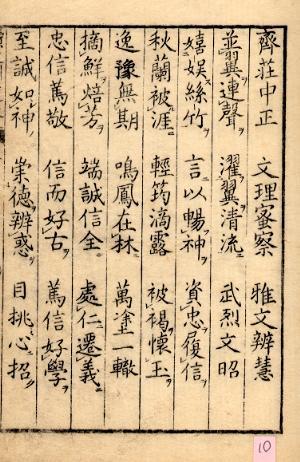 齊莊中正　文理密察　雅文辨慧
並翼連聲　濯翼清流　武烈文昭
嬉娯絲竹　言以暢神　資忠履信
秋蘭被涯　輕筠滴露　被褐懷玉
逸豫無期　鳴鳳在林　萬塗一轍
摘鮮焙芳　端誠信全　處仁遷義
忠信篤敬　信而好古　篤信好學
至誠如神　崇德辨惑　目挑心招
10